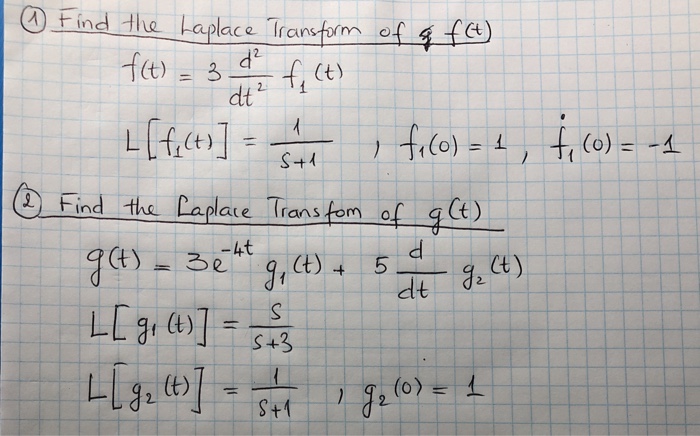 ① Find the Laplace Transform of f(t)
f(t) = 3 d²/dt² f₁(t)
L[f₁(t)] = 1/(S+1) , f₁(0) = 1 , ḟ₁(0) = -1
② Find the Laplace Transfom of g(t)
g(t) = 3e^(-4t) g₁(t) + 5 d/dt g₂(t)
L[g₁(t)] = S/(S+3)
L[g₂(t)] = 1/(S+1) , g₂(0) = 1